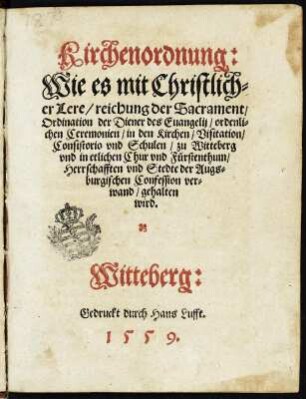 Kirchenordnung:
Wie es mit Christlich-
er Lere/ reichung der Sacrament/
Ordination der Diener des Euangelij/ ordenli-
chen Ceremonien/ in den Kirchen/ Visitation/
Consistorio vnd Schulen/ zu Witteberg
vnd in etlichen Chur vnd Fürstenthum/
Herrschafften vnd Stedte der Augs-
burgischen Confession ver-
wand/ gehalten
wird.
Witteberg:
Gedruckt durch Hans Lufft.
1559.